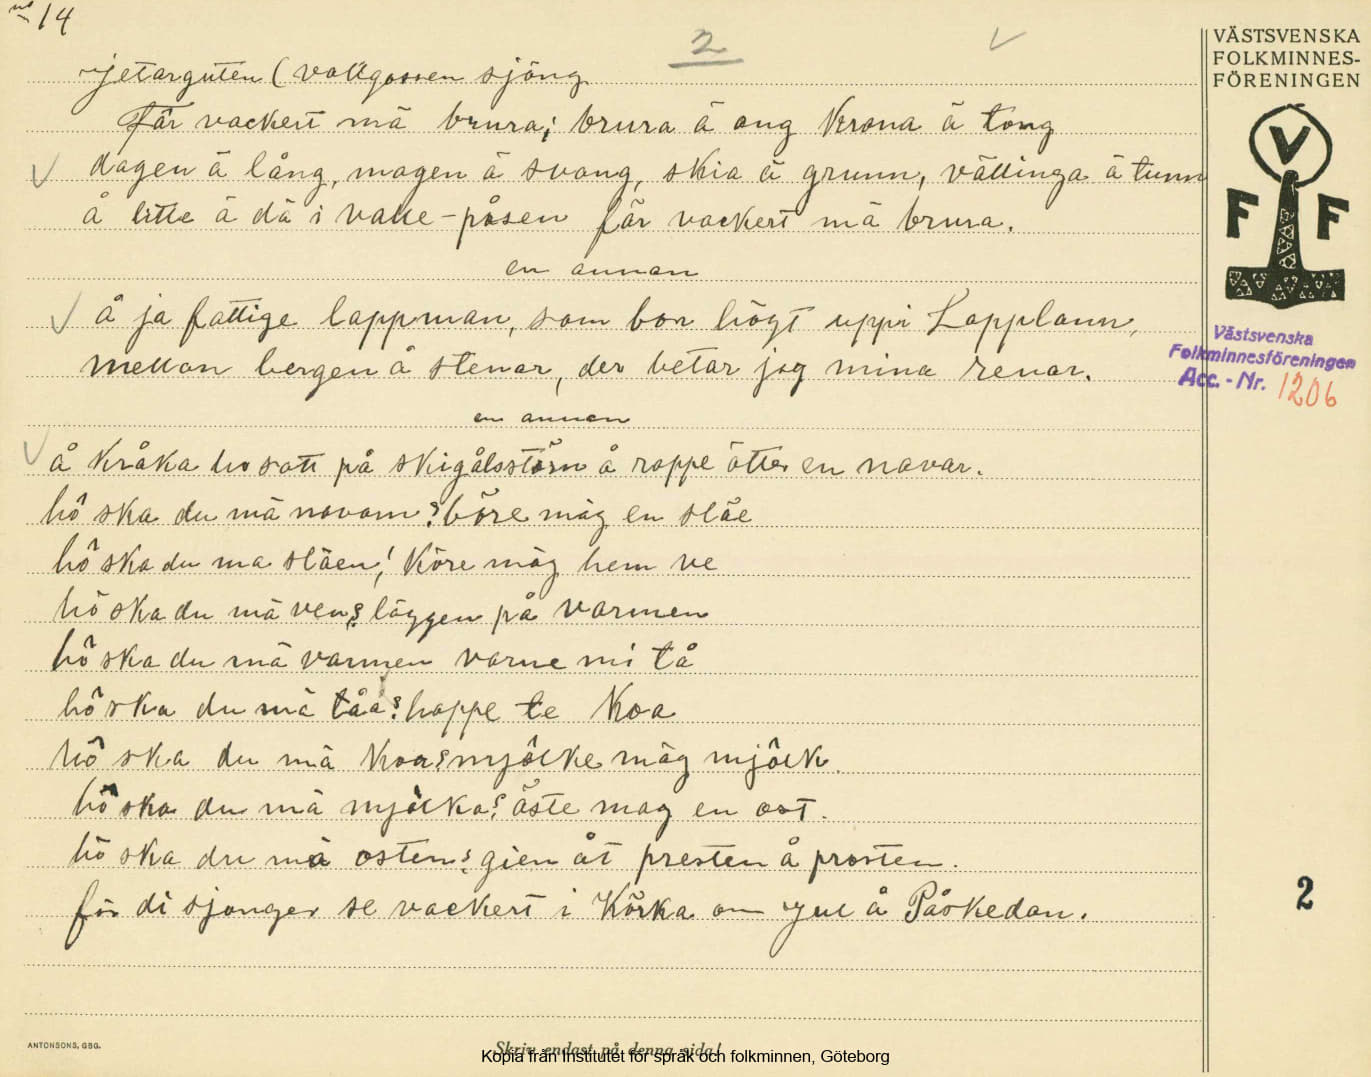 no 14
2
jetarguten (vallgossen sjöng
Får vackert mä brura; brura ä ung Krona ä tong
dagen ä lång, magen ä svang, skia ä grunn, vällinga ä tunn
å litte ä dä i valle-påsen får vackert mä brura.
en annan
å ja fattige lappman, som bor högt uppi Lapplann,
mellan bergen å stenar, der betar jag mina renar.
en annan
å Kråka ho satt på skigålsstörn å roppe ätter en navar.
hô ska du mä navarn? böre mäg en släe
hô ska du ma släen! Köre mäg hem ve
hô ska du mä ven? läggen på varmen
hô ska du mä varmen varme mi tå
hô ska du mä tåa? hoppe te Koa
hô ska du mä Koa? mjôlke mäg mjôlk.
hô ska du mä mjôlka? öste mag en ost.
hô ska du mä osten? gien åt presten å prosten.
för di sjonger se vackert i Körka om Jul å Påskedan.
VÄSTSVENSKA
FOLKMINNES-
FÖRENINGEN
V
F F
Västsvenska
Folkminnesföreningen
Acc. - Nr. 1206
2
ANTONSONS, GBG.
Skriv endast på denna sida!
Kopia från Institutet för språk och folkminnen, Göteborg